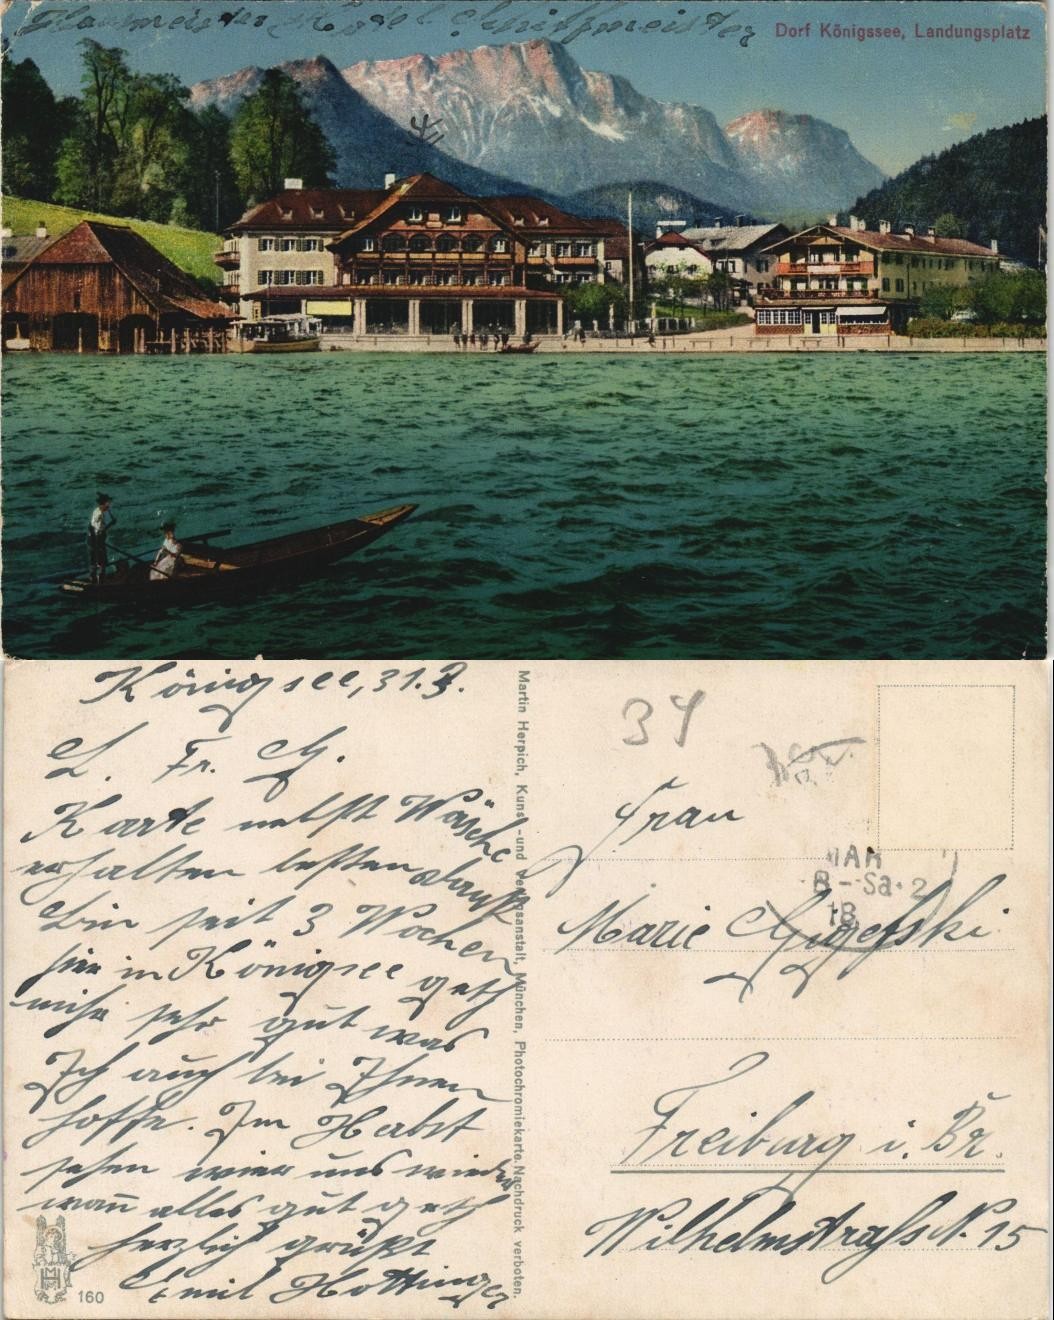 Hausmeister Hotel Schiffmeister
Dorf Königssee, Landungsplatz
Königssee, 31.3.
L. Fr. G.
Karte nebst Wäsche
erhalten besten Dank
bin seit 3 Wochen
hier in Königsee geth
mihr sehr gut was
Ich auch bei Ihnen
hoffe. Im Herbst
sehen wier uns wieder
wan̄ alles gut geth
herzlich grüßt
Emil Hottinger
160
Martin Herpich, Kunst-und Verlagsanstalt, München, Photochromiekarte. Nachdruck verboten.
34
Frau
Marie
Freiburg i. Br.
Wilhelmstraße N. 15